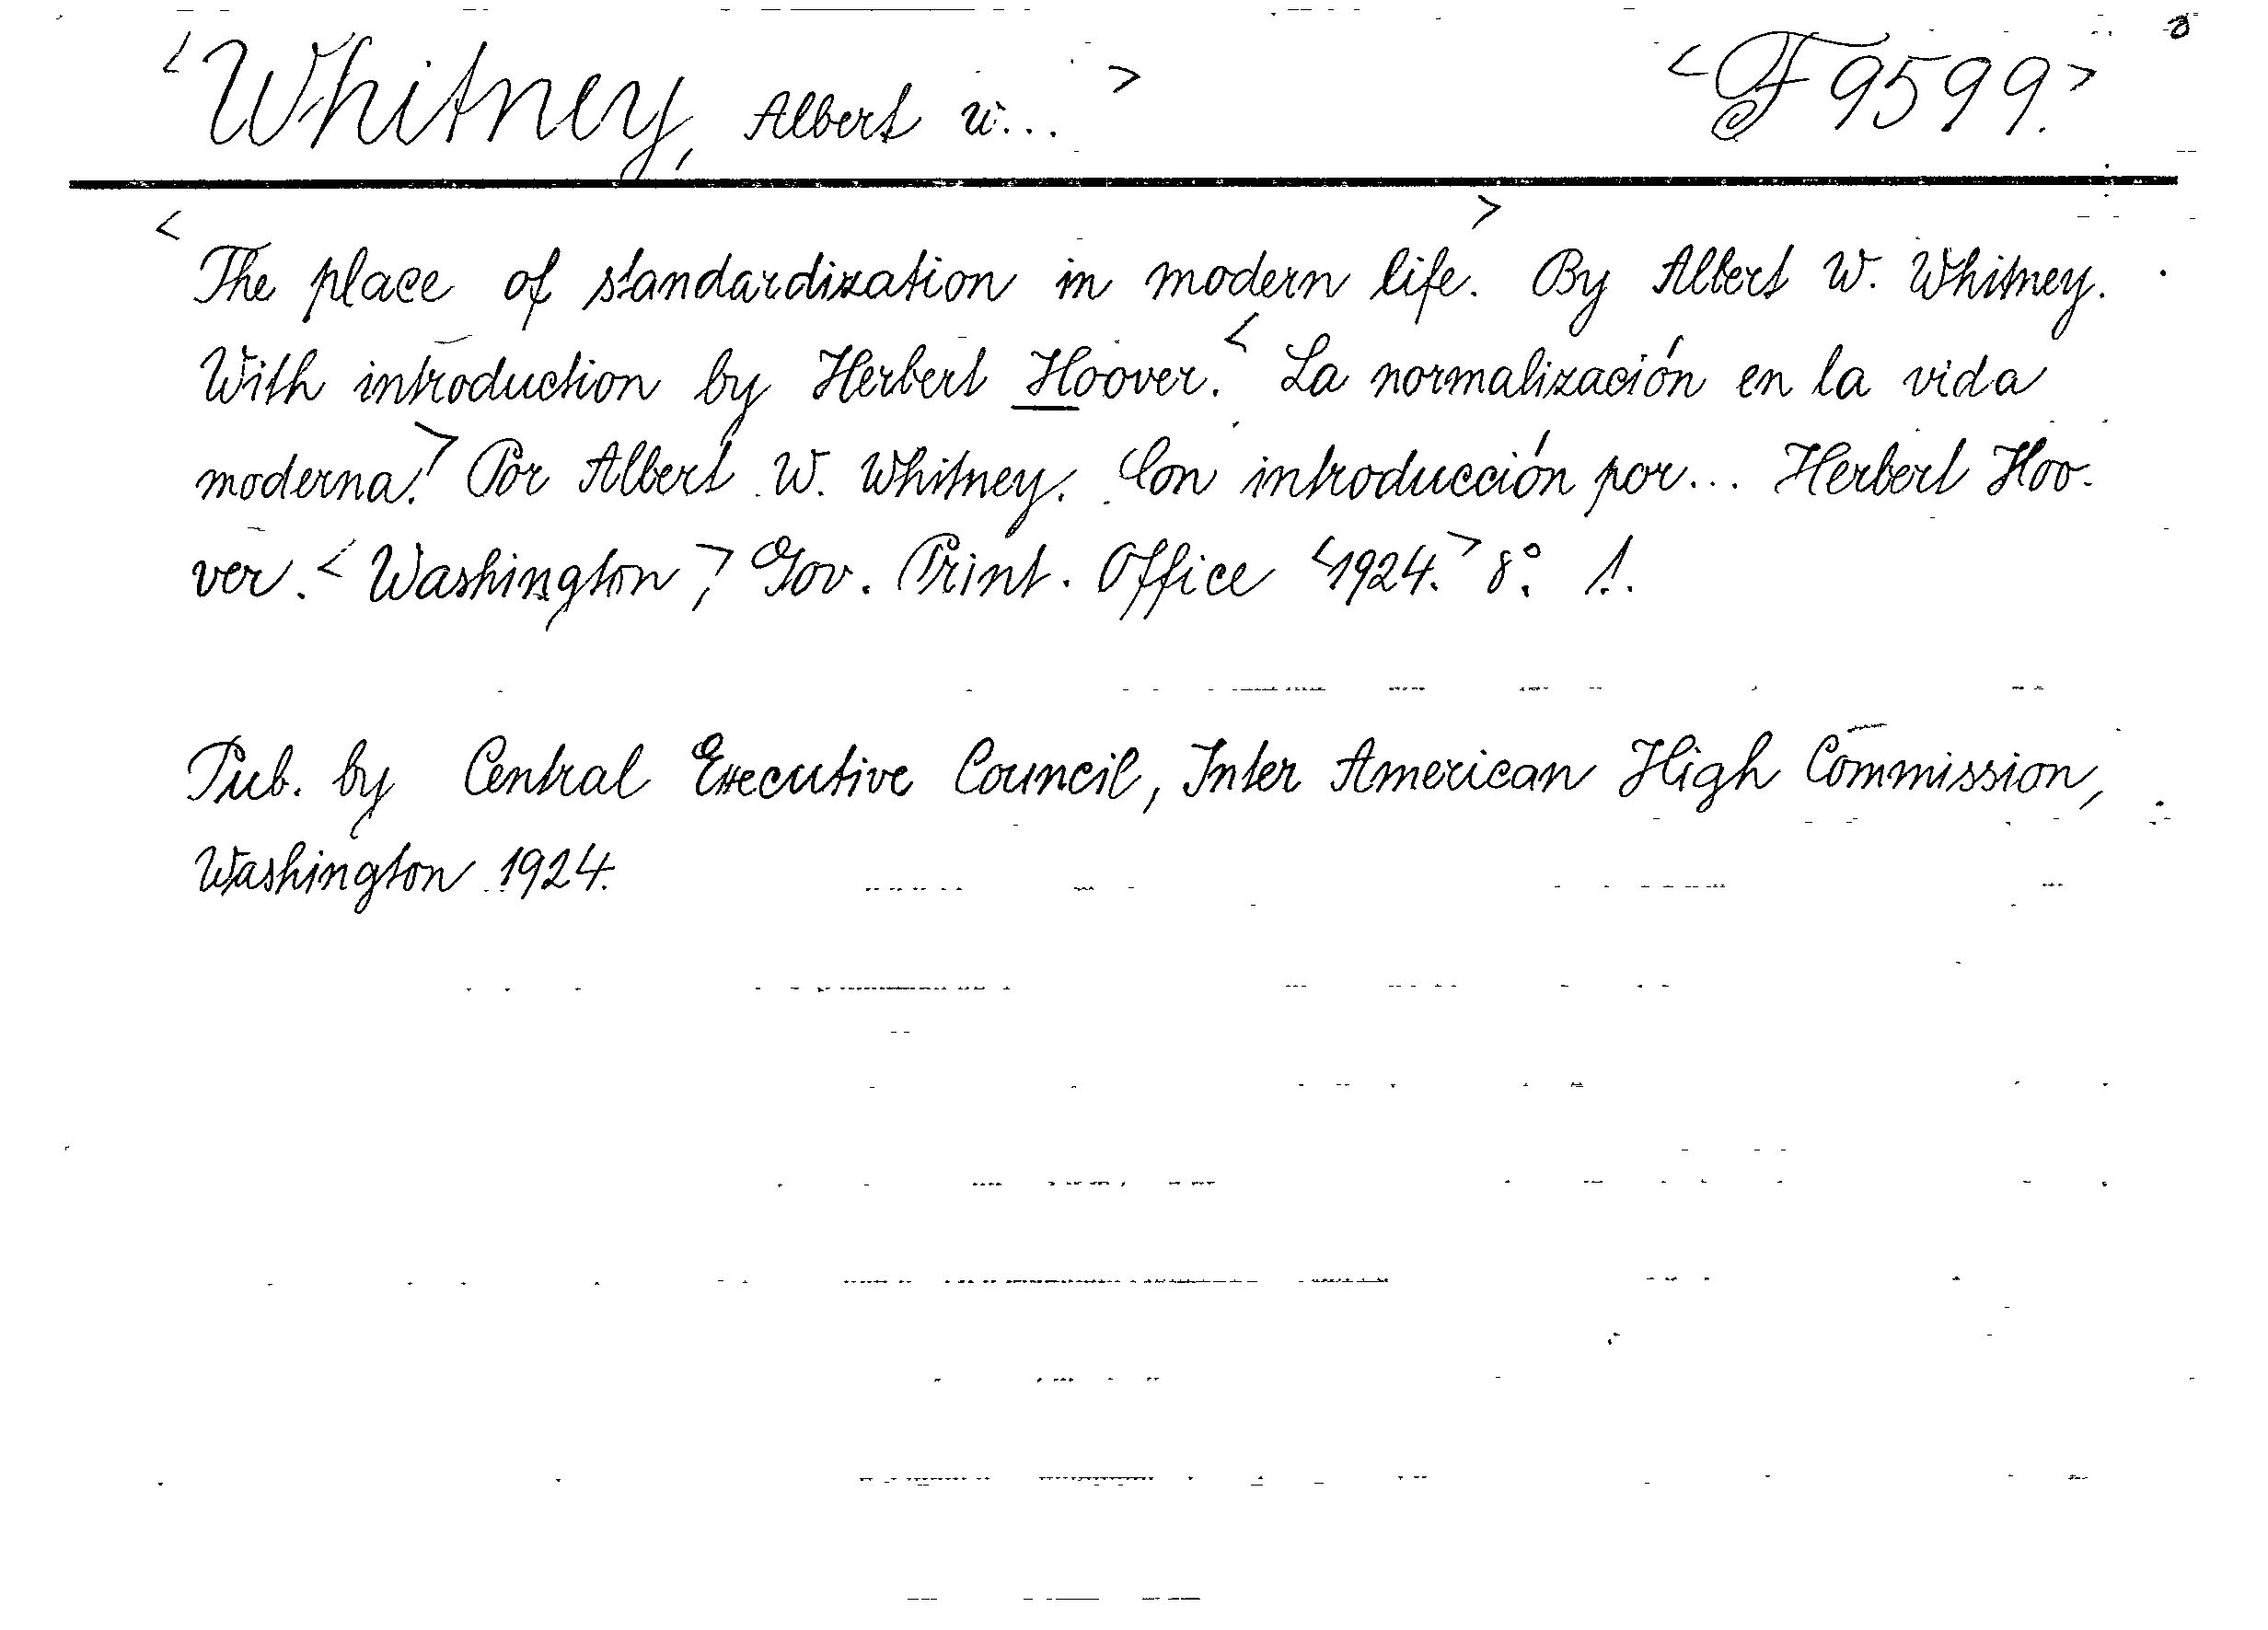 <Whitney, Albert W...> <F 9599.>
<The place of standardization in modern life.> By Albert W. Whitney.
With introduction by Herbert Hoover. <La normalización en la vida
moderna.> Por Albert W. Whitney. Con introducción por... Herbert Hoo-
ver. <Washington,> Gov. Print. Office <1924.> 8°. 1.
Pub. by Central Executive Council, Inter American High Commission,
Washington 1924.